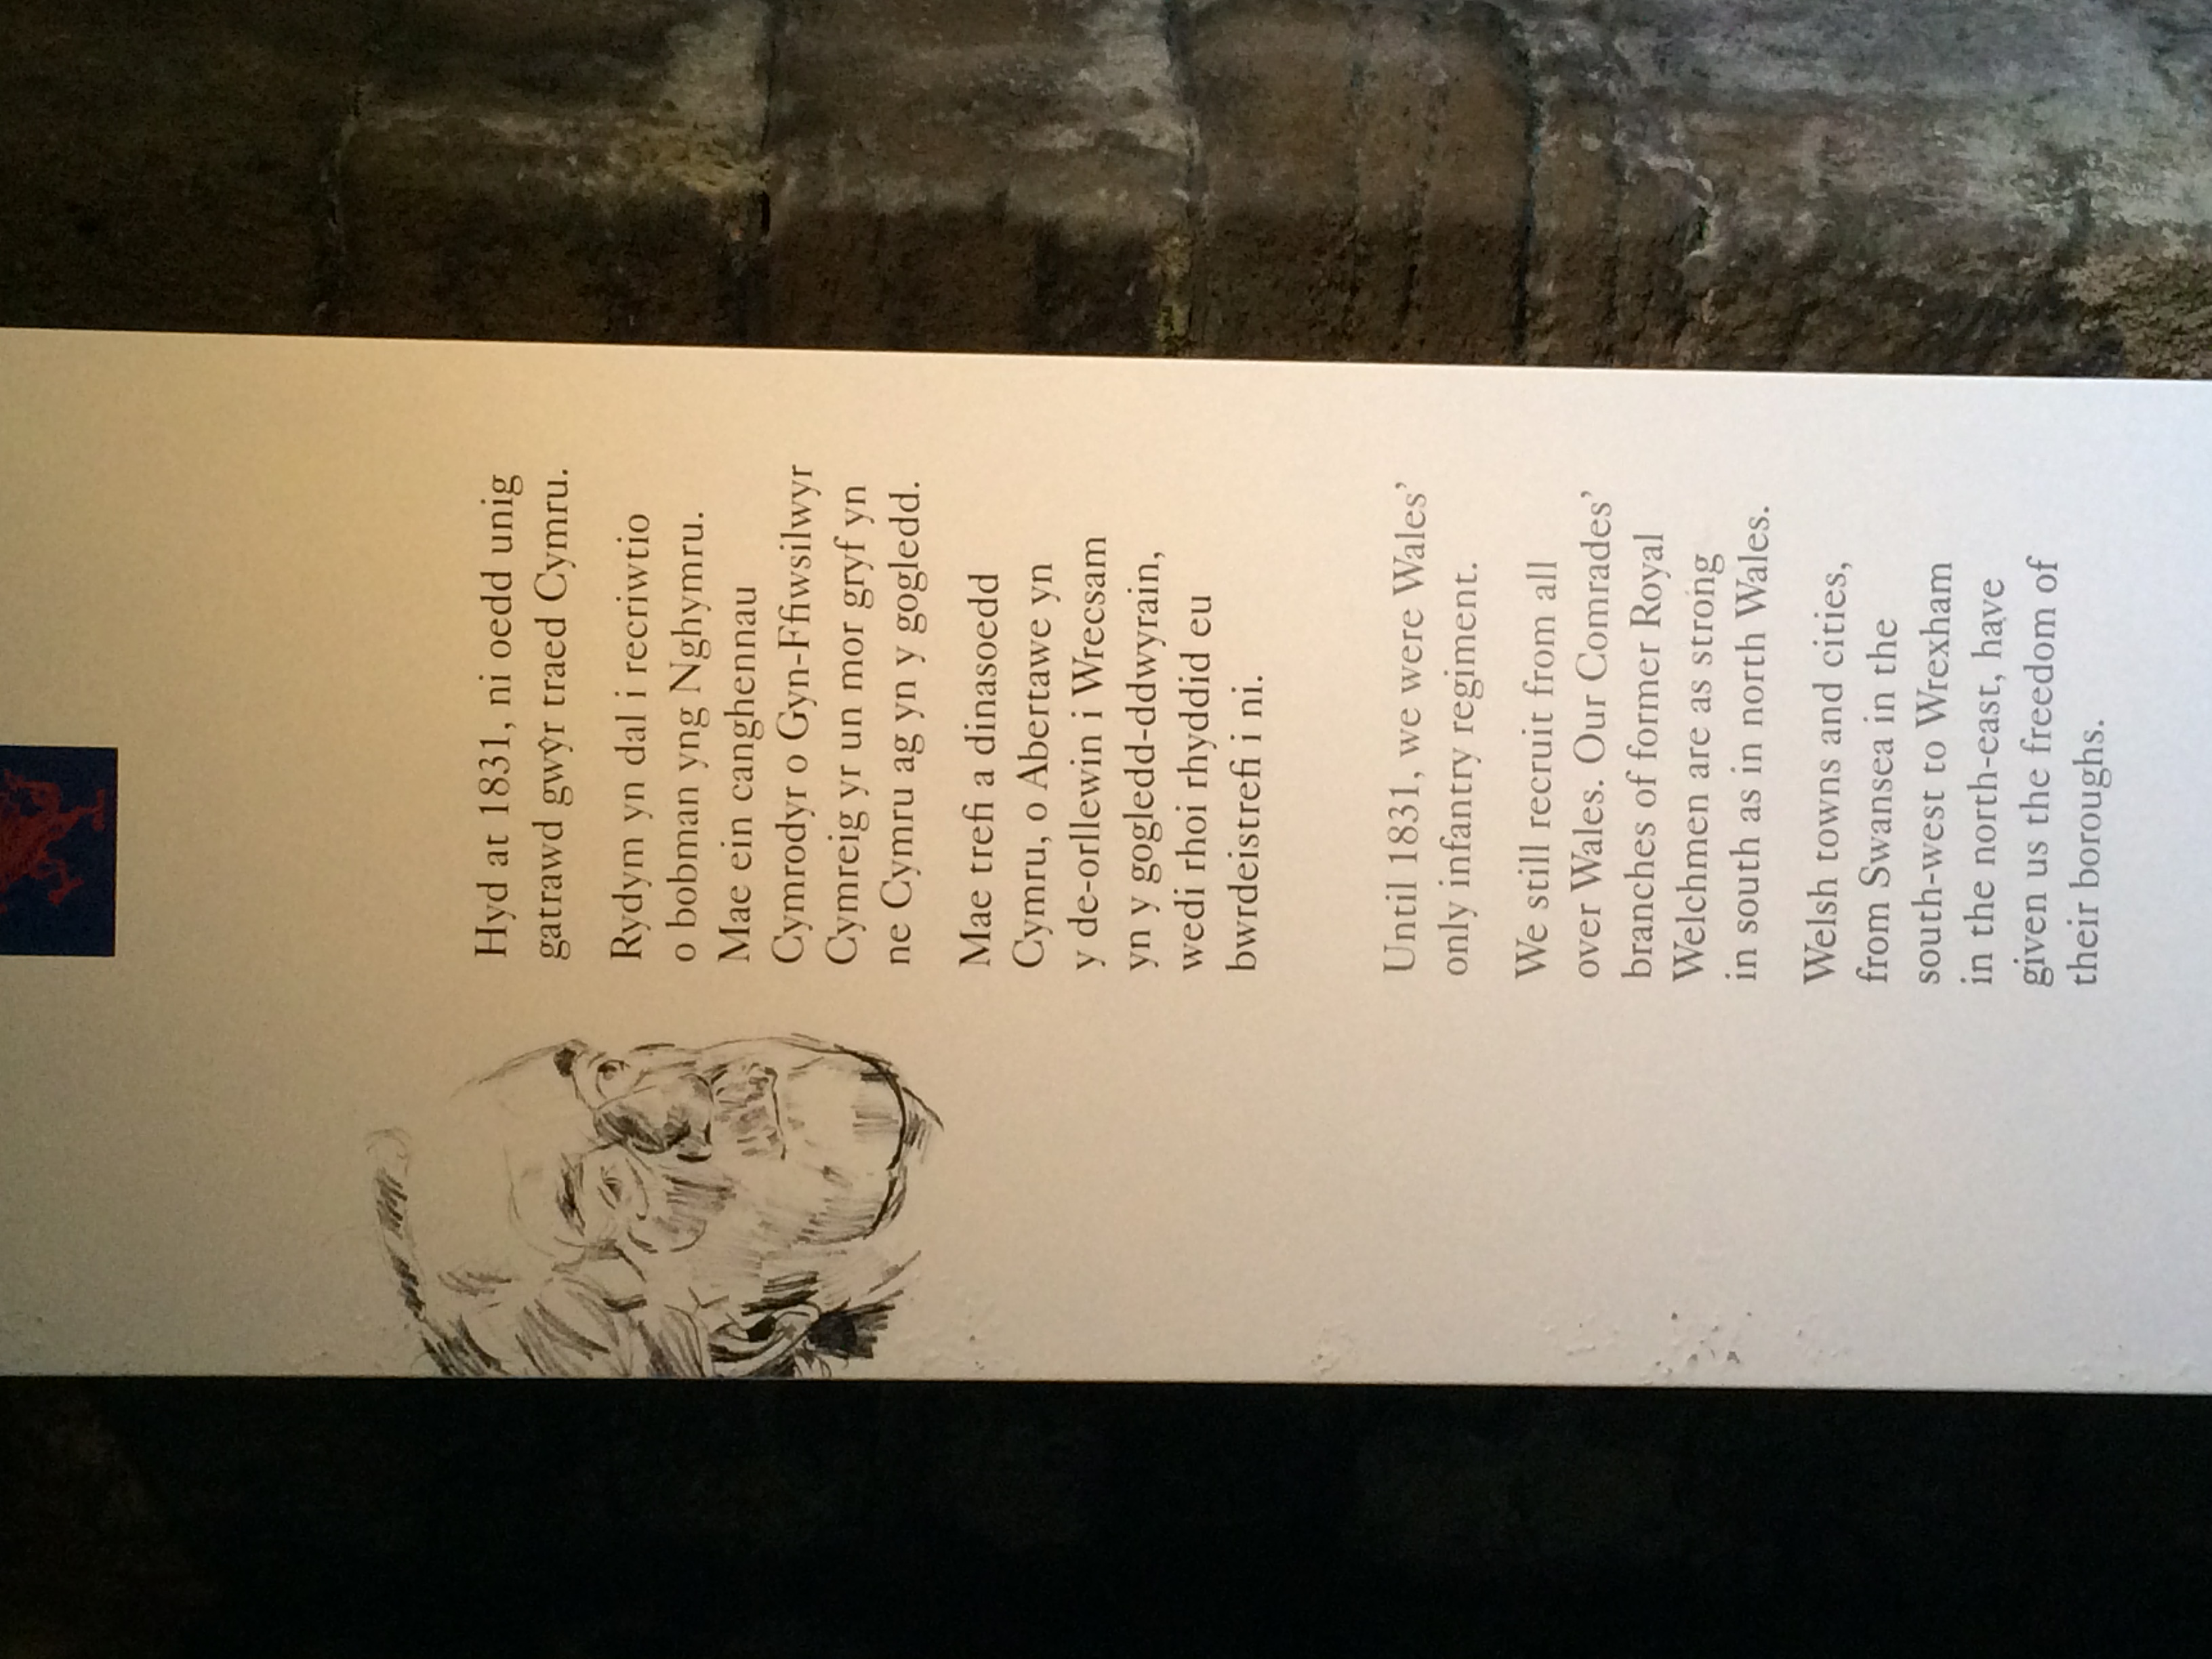 Hyd at 1831, ni oedd unig
gatrawd gwŷr traed Cymru.
Rydym yn dal i recriwtio
o bobman yng Nghymru.
Mae ein canghennau
Cymrodyr o Gyn-Ffiwsilwyr
Cymreig yr un mor gryf yn
ne Cymru ag yn y gogledd.
Mae trefi a dinasoedd
Cymru, o Abertawe yn
y de-orllewin i Wrecsam
yn y gogledd-ddwyrain,
wedi rhoi rhyddid eu
bwrdeistrefi i ni.
Until 1831, we were Wales’
only infantry regiment.
We still recruit from all
over Wales. Our Comrades’
branches of former Royal
Welchmen are as strong
in south as in north Wales.
Welsh towns and cities,
from Swansea in the
south-west to Wrexham
in the north-east, have
given us the freedom of
their boroughs.